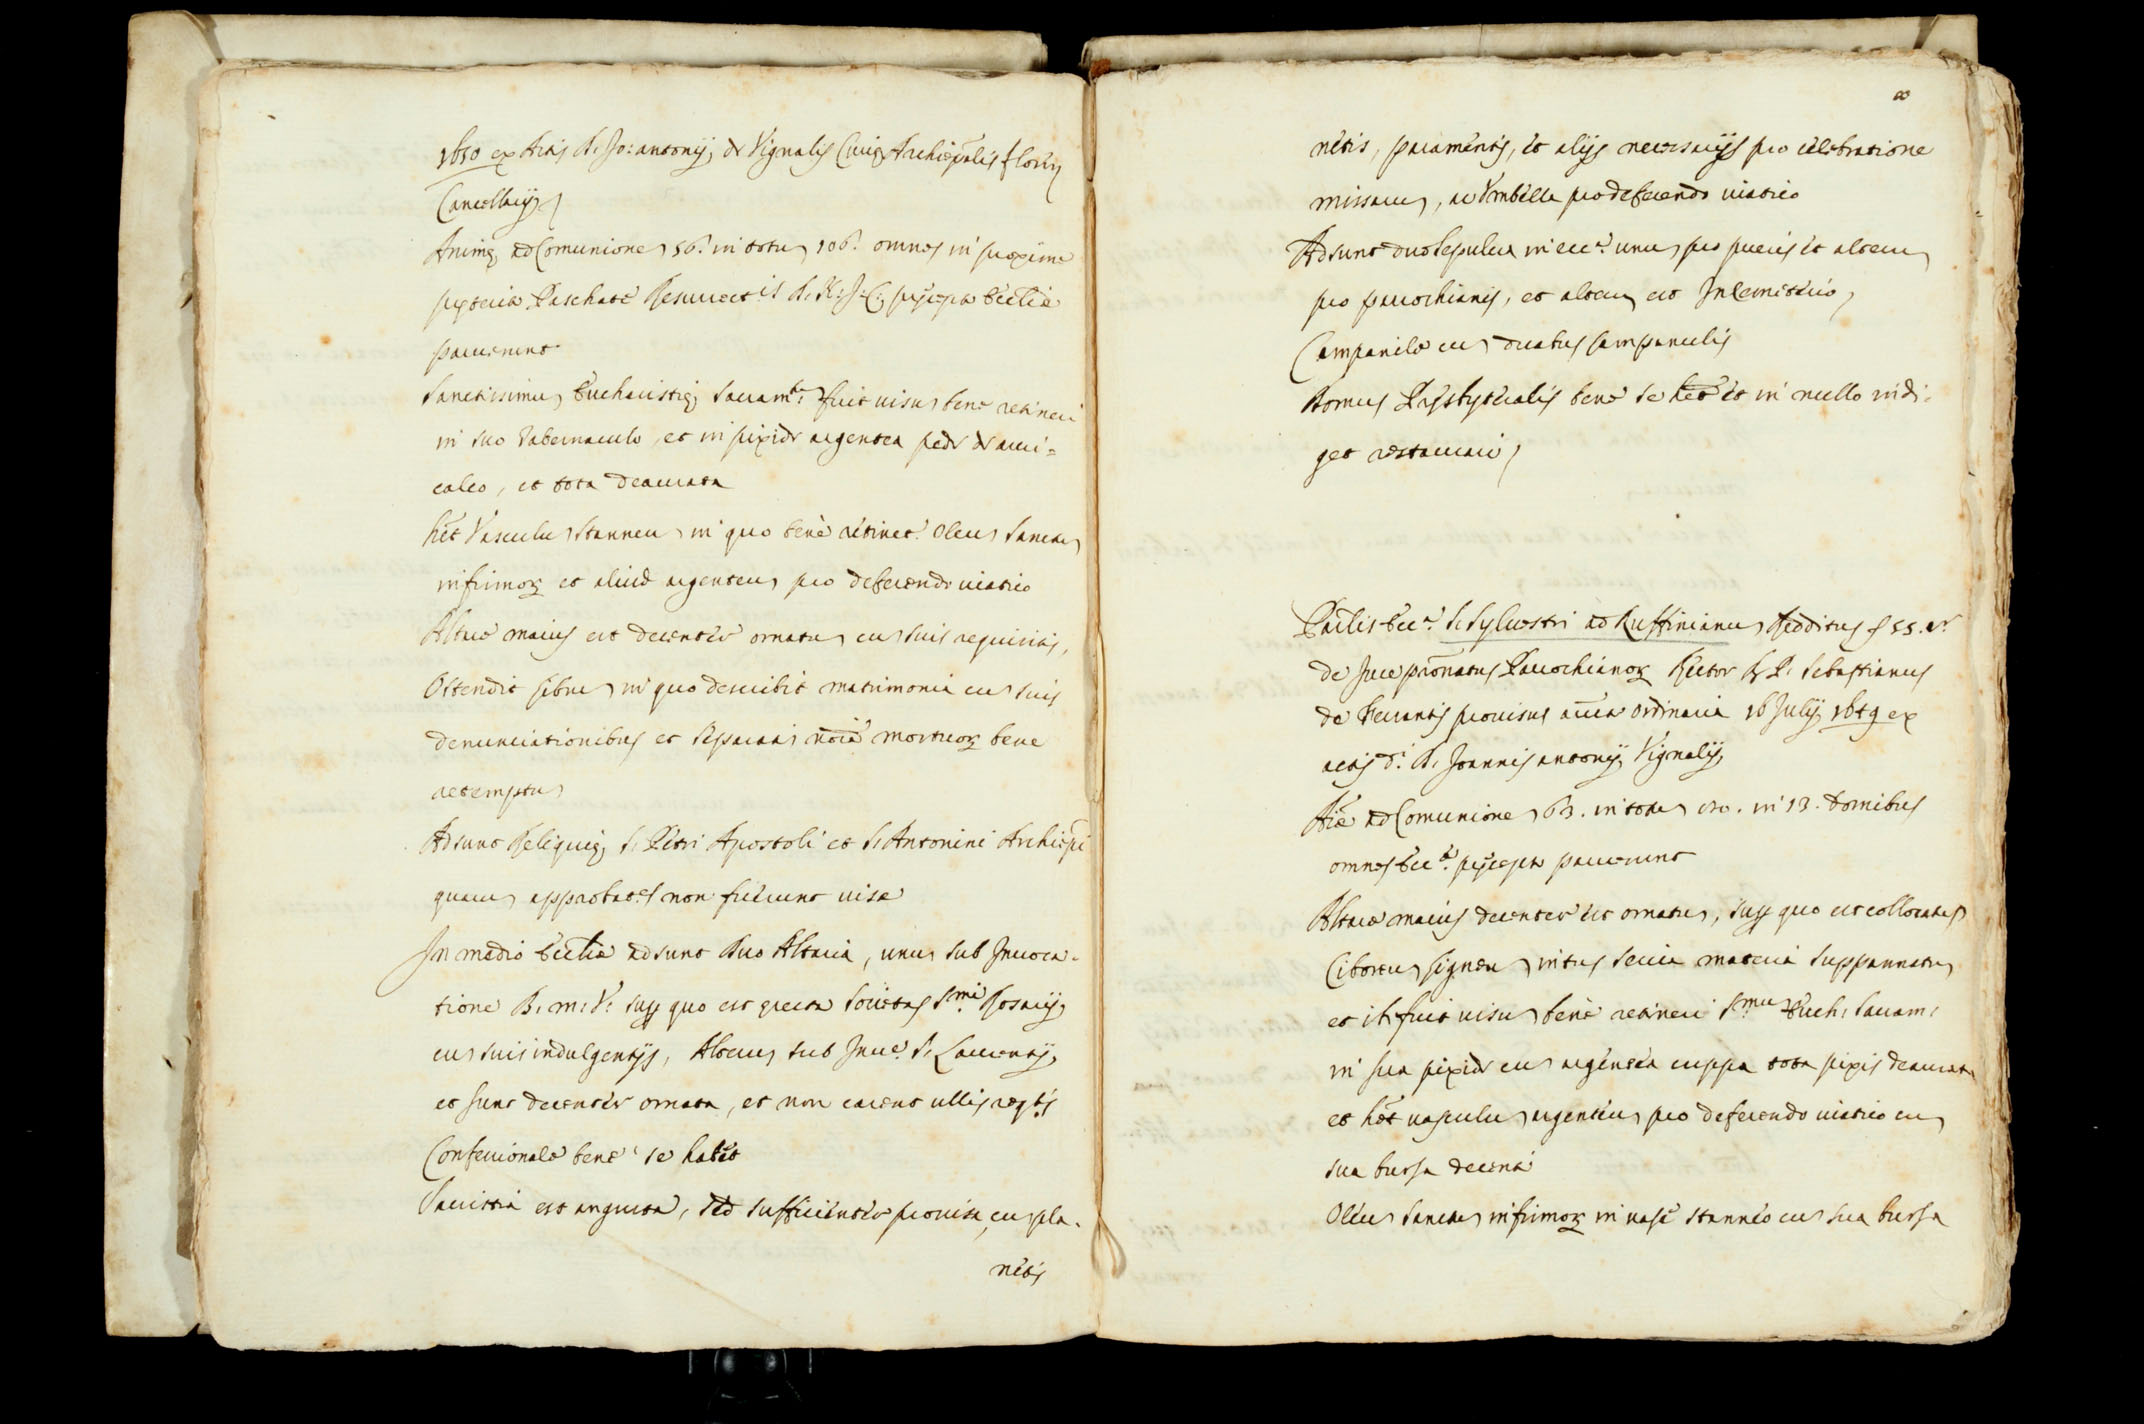 1650 ex Actis D. Jo: antonij de Vignalis Curię Archiepalis florñ
Cancellarij
Animę ad Comunione 56. in totu 106. omnes in proxime
preterita Paschate Resurrectis D. N. J. C. precepta Ecctiæ
paruerunt
Sanctissimu Eucharistię Sacramtu fuit visu bene retineri
in suo tabernaculo, et in pixide argentea pede de auri=
calco, et tota deaurata
het Vasculu stanneu in quo bene retinet Oleu sanctu
infirmoʀ et aliud argenteu pro deferendo viatico
Altare maius est decenter ornatu cu suis requisitis,
Ostendit libru in quo describit matrimonia cu suis
denunciationibus et separata noia mortuoʀ bene
retemptu
Adsunt Reliquię S. Petri Apostoli et S. Antonini Archiepi
quaru approbaes non fuerunt visæ
In medio Ecctiæ adsunt duo Altaria, unu sub Invoca=
tione B. M. V. supr quo est erecta Societas Smi Rosarij
cu suis indulgentijs, Alteru sub Invne S. Laurentij
et sunt decenter ornata, et non carent ullis reqtis
Confessionale bene se habet
Sacristia est angusta, sed sufficienter provisa, cu pla=
netis
8
netis, paramentis, et alijs necessarijs pro celebratione
missaru, ac Umbella pro deferendo viatico
Adsunt duo sepulcra in ecca unu pro pueris et alteru
pro parochianis, et alteru est In Cemeterio
Campanile cu duabus campanulis
Domus Presbyteralis bene se het et in nullo indi=
get restaurari
Paclis Ecca S. Sylvestri ad Ruffinianu Redditus f 55. er
de Jure pronatus Parochianoʀ Rector R. P. Sebastianus
de Ferrantis provisus aucta ordinaria 16 Julij 1649 ex
actis d. D. Joannis antonij Vignalij
Aiæ ad Comunione 63. in totu 120. in 13. Domibus
omnes Ecctæ precepta paruerunt
Altare maius decenter est ornatu, supr quo est collocatu
Ciboriu ligneu intus serica materia suppannatu
et ibi fuit visu bene retineri Smu Euch. Sacram.
in sua pixide cu argentea cuppa tota pixis deaurata
et het vasculu argenteu pro deferendo viatico cu
sua bursa decenti
Oleu sanctu infirmoʀ in vase stanneo cu sua bursa